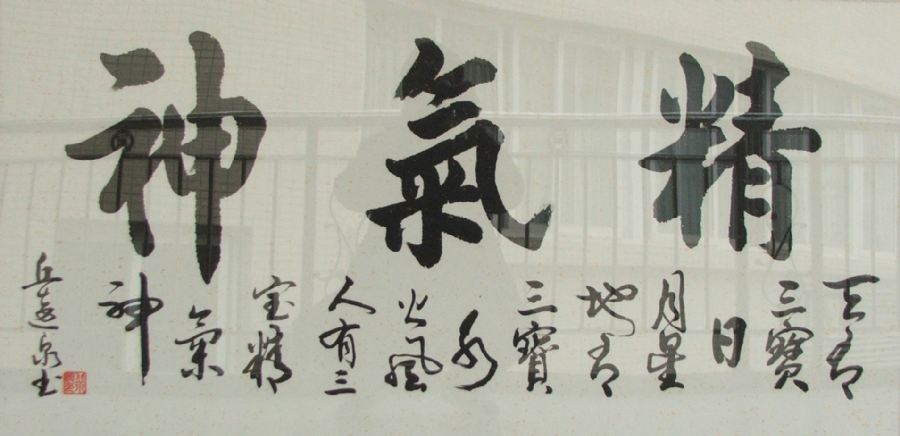 精氣神
天有
三寶
日
月星
地有
三寶
水
火風
人有三
宝精
氣
神
丘遠泉书